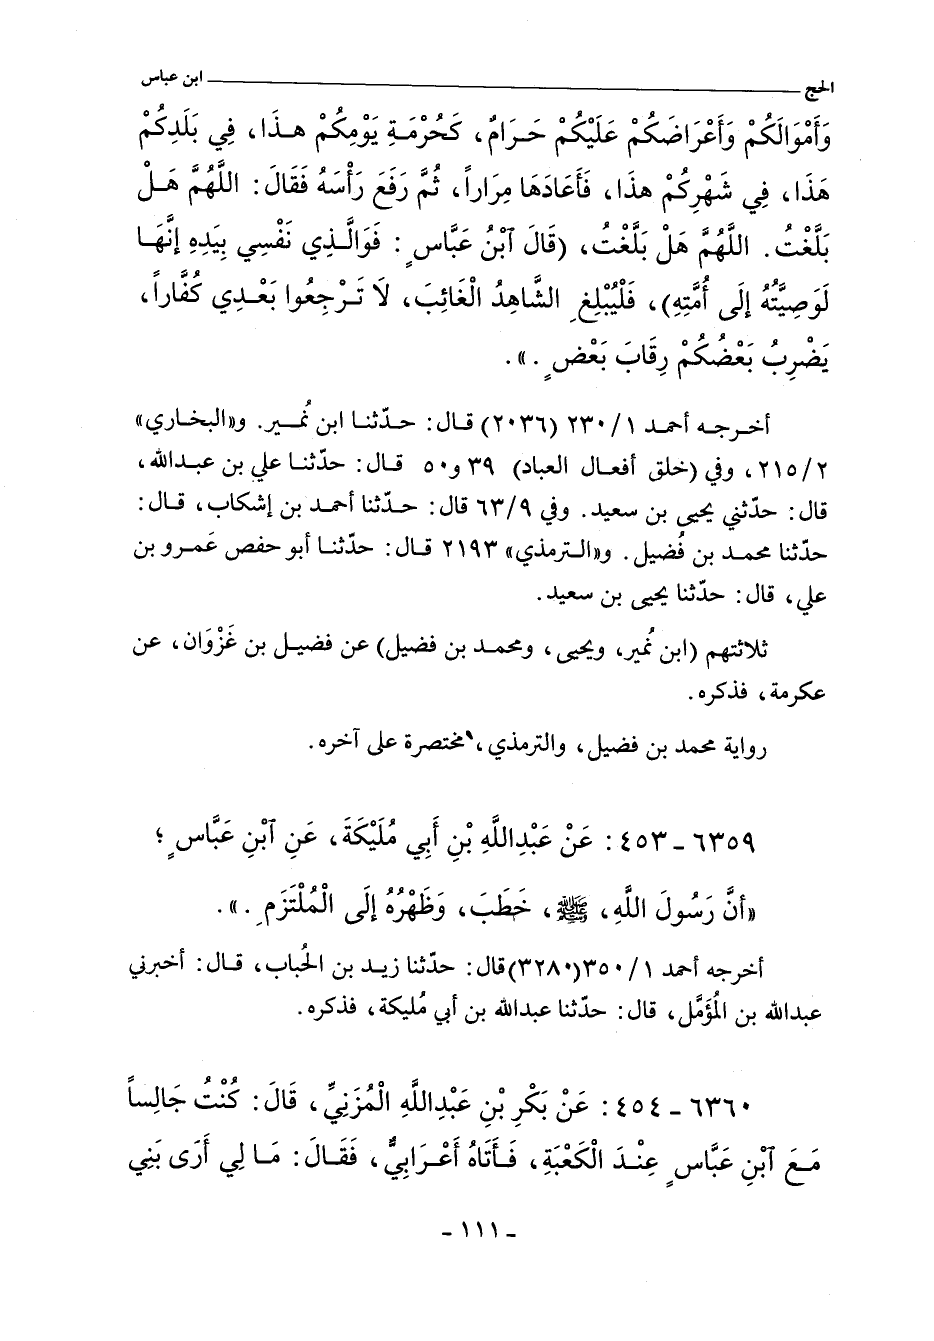 الحج ابن عباس
وَأَمْوَالَكُمْ وَأَعْرَاضَكُمْ عَلَيْكُمْ حَرَامٌ، كَحُرْمَةِ يَوْمِكُمْ هذَا، فِي بَلَدِكُمْ
هَذَا، فِي شَهْرِكُمْ هذَا، فَأَعَادَهَا مِرَاراً، ثُمَّ رَفَعَ رَأْسَهُ فَقَالَ: اللَّهُمَّ هَلْ
بَلَّغْتُ. اللَّهُمَّ هَلْ بَلَّغْتُ، (قَالَ آبْنُ عَبَّاسٍ: فَوَالَّذِي نَفْسِي بِيَدِهِ إِنَّهَا
لَوَصِيَّتُهُ إِلَى أُمَّتِهِ)، فَلْيُبْلِغِ الشَّاهِدُ الْغَائِبَ، لَا تَرْجِعُوا بَعْدِي كُفَّاراً،
يَضْرِبُ بَعْضُكُمْ رِقَابَ بَعْضٍ.».
أخرجه أحمد ٢٣٠/١ (٢٠٣٦) قال: حدّثنا ابن نُمير. و«البخاري»
٢١٥/٢، وفي (خلق أفعال العباد) ٣٩ و٥٠ قال: حدّثنا علي بن عبدالله،
قال: حدّثني يحيى بن سعيد. وفي ٦٣/٩ قال: حدّثنا أحمد بن إشكاب، قال:
حدّثنا محمد بن فُضيل. و«الترمذي» ٢١٩٣ قال: حدّثنا أبو حفص عَمرو بن
علي، قال: حدّثنا يحيى بن سعيد.
ثلاثتهم (ابن نُمير، ويحيى، ومحمد بن فضيل) عن فضيل بن غَزْوَان، عن
عكرمة، فذكره.
رواية محمد بن فضيل، والترمذي، مختصرة على آخره.
٦٣٥٩ - ٤٥٣: عَنْ عَبْدِاللَّهِ بْنِ أَبِي مُلَيْكَةَ، عَنِ آبْنِ عَبَّاسٍ؛
«أَنَّ رَسُولَ اللَّهِ، ﷺ، خَطَبَ، وَظَهْرُهُ إِلَى الْمُلْتَزَمِ.».
أخرجه أحمد ٣٥٠/١(٣٢٨٠)قال: حدّثنا زيد بن الحُباب، قال: أخبرني
عبدالله بن الْمُؤَمَّل، قال: حدّثنا عبدالله بن أبي مُليكة، فذكره.
٦٣٦٠ - ٤٥٤: عَنْ بَكْرِ بْنِ عَبْدِاللَّهِ الْمُزَنِيِّ، قَالَ: كُنْتُ جَالِساً
مَعَ آبْنِ عَبَّاسٍ عِنْدَ الْكَعْبَةِ، فَأَتَاهُ أَعْرَابِيٌّ، فَقَالَ: مَا لِي أَرَى بَنِي
- ١١١ -